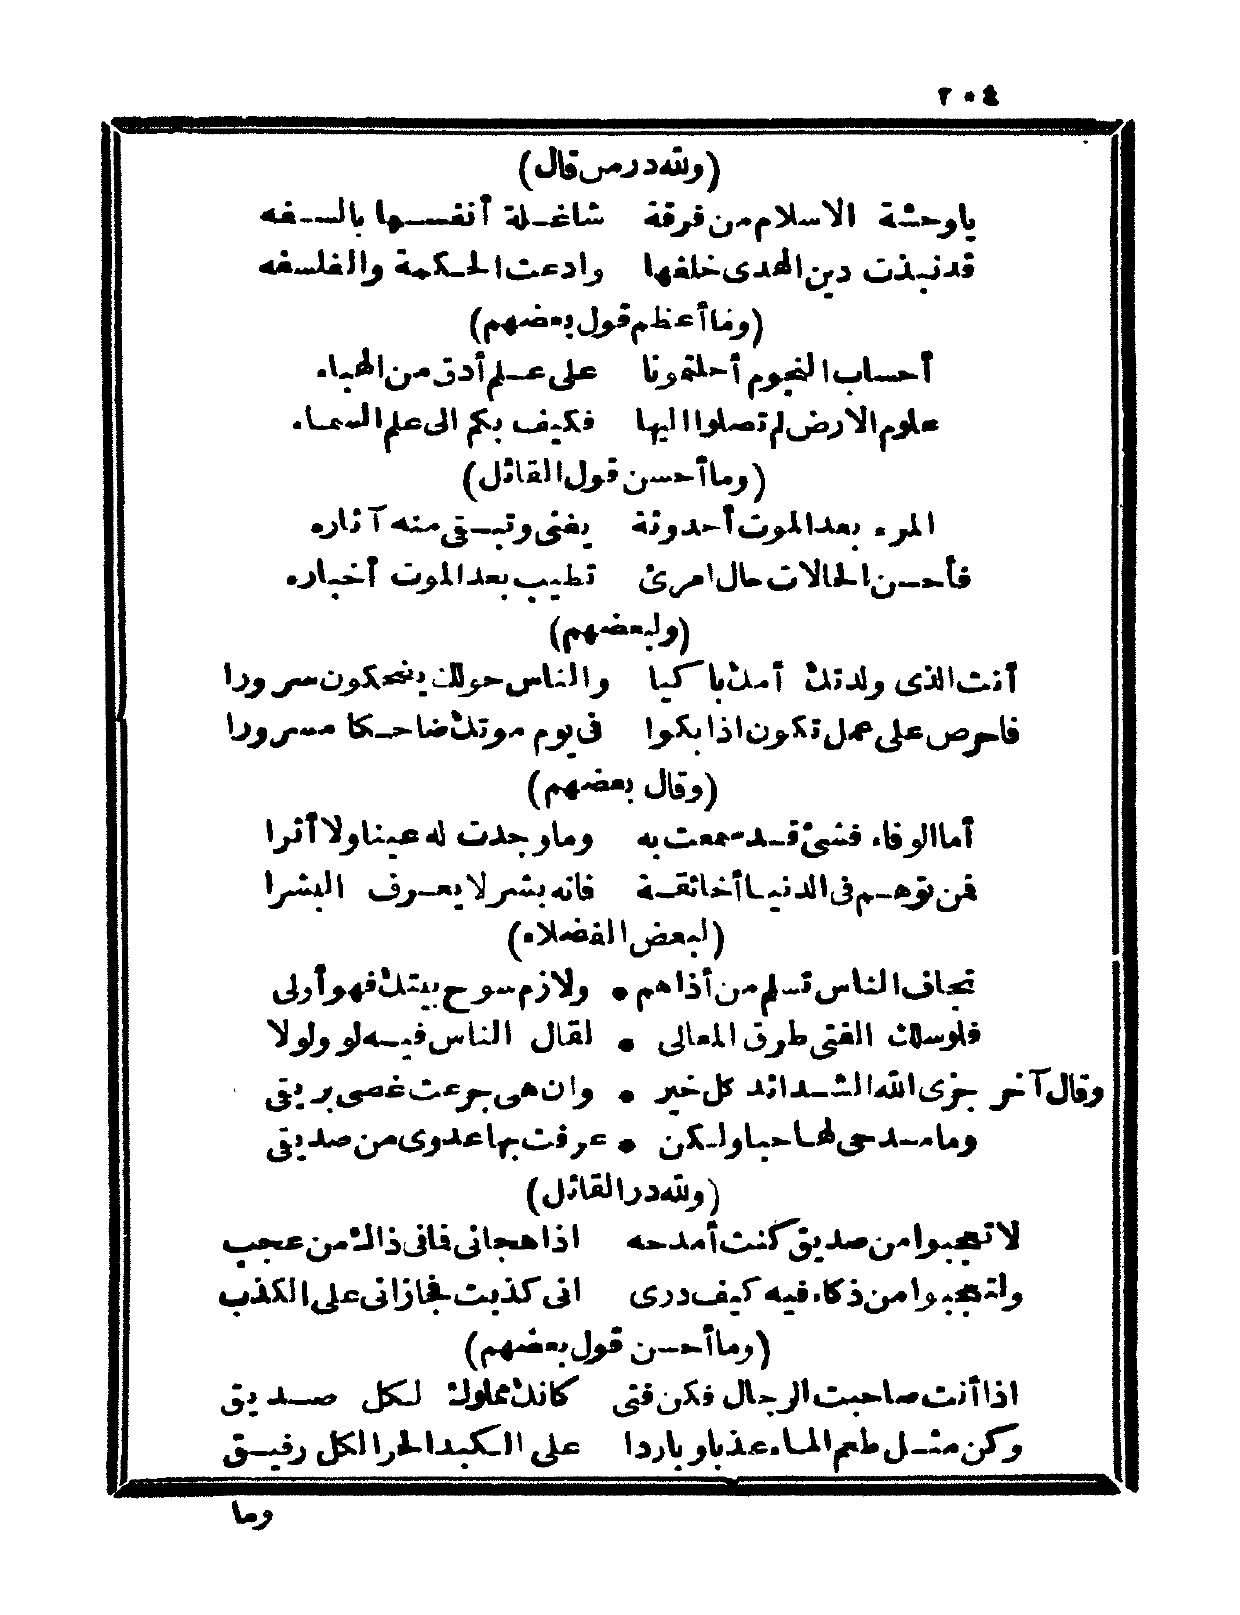 ٢٠٤
(ولله در من قال)
ياوحشة الاسلام من فرقة شاغلة أنفسها بالسفه
قد نبذت دين الهدى خلفها وادعت الحكمة والفلسفه
(وما أعظم قول بعضهم)
أحساب النجوم أحلتمونا على علم أدق من الهباء
علوم الارض لم تصلوا اليها فكيف بكم الى علم السماء
(وما أحسن قول القائل)
المرء بعد الموت أحدوثة يفنى وتبقى منه آثاره
فأحسن الحالات حال امرئ تطيب بعد الموت أخباره
(ولبعضهم)
أنت الذى ولدتك أمك باكيا والناس حولك يضحكون سرورا
فاحرص على عمل تكون اذا بكوا فى يوم موتك ضاحكا مسرورا
(وقال بعضهم)
أما الوفاء فشئ قد سمعت به وما وجدت له عينا ولا أثرا
فمن توهم فى الدنيا أخاثقة فانه بشر لا يعرف البشرا
(لبعض الفضلاء)
تجاف الناس تسلم من أذاهم • ولازم سوح بيتك فهو أولى
فلو سلك الفتى طرق المعالى • لقال الناس فيه لو ولولا
وقال آخر جزى الله الشدائد كل خير • وان هى جرعت غصى بريقى
وما مدحى لها حبا ولكن • عرفت بها عدوى من صديقى
(ولله در القائل)
لا تعجبوا من صديق كنت أمدحه اذا هجانى فانى ذاك من عجب
ولتعجبوا من ذكاء فيه كيف درى انى كذبت فجازانى على الكذب
(وما أحسن قول بعضهم)
اذا أنت صاحبت الرجال فكن فتى كانك مملوك لكل صديق
وكن مثل طعم الماء عذبا وباردا على الكبد الحرا لكل رفيق
وما